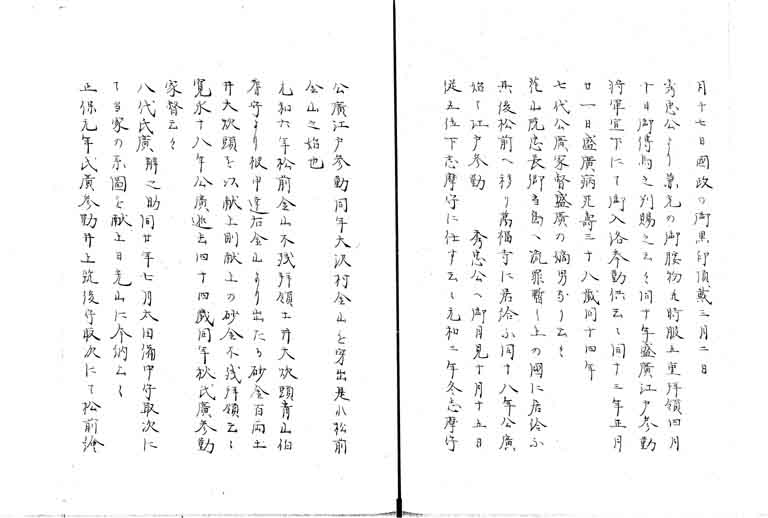 月十七日国政の御黒印頂戴三月二日
秀忠公より兼光の御腰物丸時服五重拝領四月
十日御傳馬之判賜之云々同十年盛廣江戸参勤
将軍宣下にて御入洛参勤供云々同十三年正月
廿一日盛廣病死壽三十八歳同十四年
七代公廣家督盛廣の嫡男なり云々
花山院忠長卿当島へ流罪暫く上の國に居給ふ
其後松前へ移り萬福寺に居給ふ同十八年公廣
始て江戸参勤 秀忠公へ御目見十月十五日
従五位下志摩守に任ず云々元和二年冬志摩守
公廣江戸参勤同年大沢村金山を穿出是れ松前
金山之始也
元和六年松前金山不残拝領土井大炊頭青山伯
耆守より被申達右金山より出たる砂金百両土
井大炊頭を以献上則献上の砂金不残拝領云々
寛永十八年公廣逝去四十四歳同年秋氏廣参勤
家督云々
八代氏廣 辨之助同廿年七月太田備中守取次に
て当家の系圖を献上日光山に令納云々
正保元年氏廣参勤井上筑後守取次にて松前繪